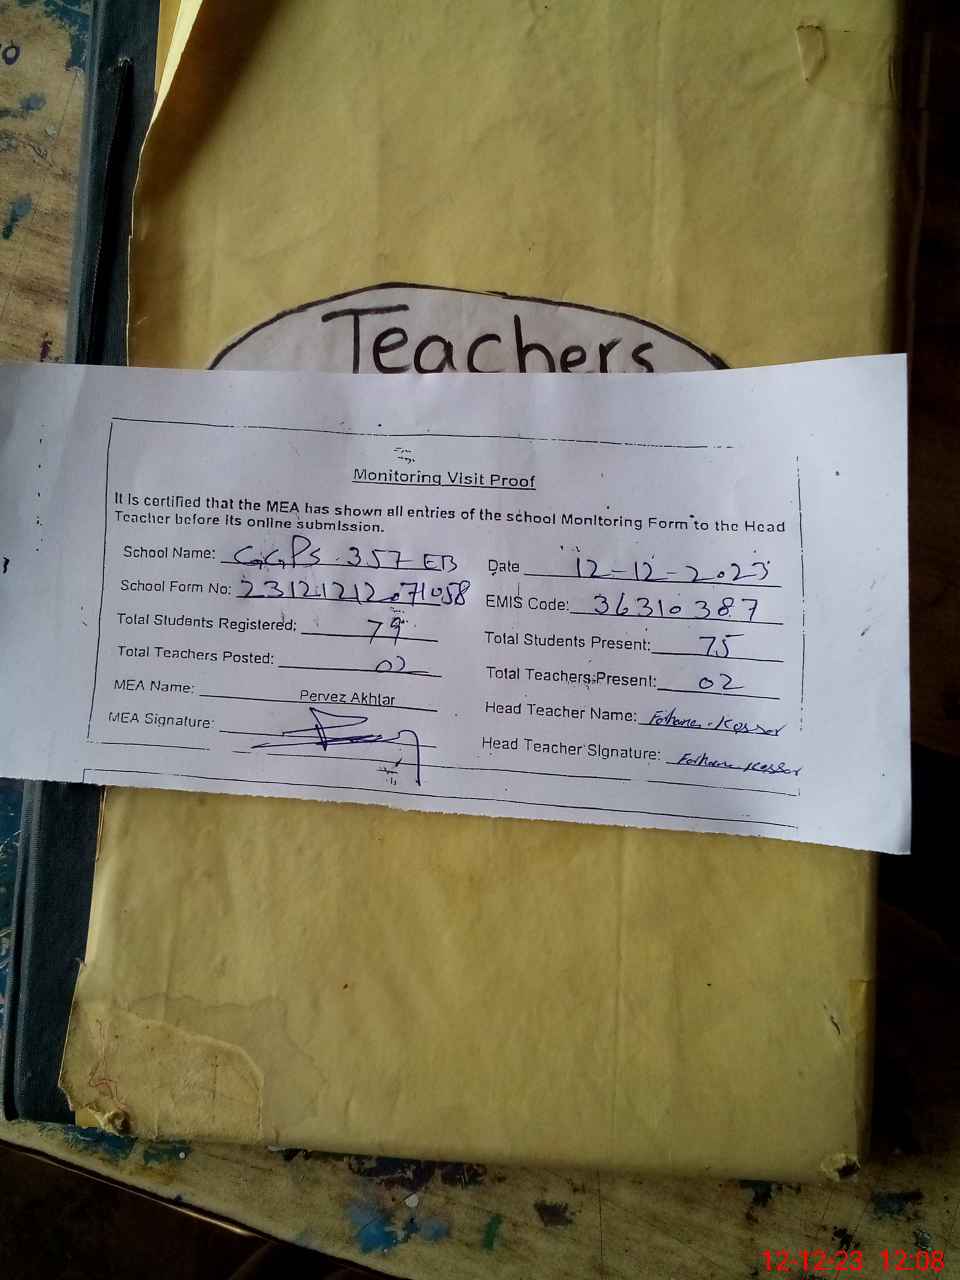 Teachers
Monitoring Visit Proof
It is certified that the MEA has shown all entries of the school Monitoring Form to the Head
Teacher before its online submission.
School Name: GGPS 357 EB
Date 12-12-2023
School Form No: 23121212071058
EMIS Code: 36310387
Total Students Registered: 79
Total Students Present: 75
Total Teachers Posted: 02
Total Teachers Present: 02
MEA Name: Pervez Akhtar
Head Teacher Name: Kossor
MEA Signature:
Head Teacher Signature: Kossor
12-12-23 12:08